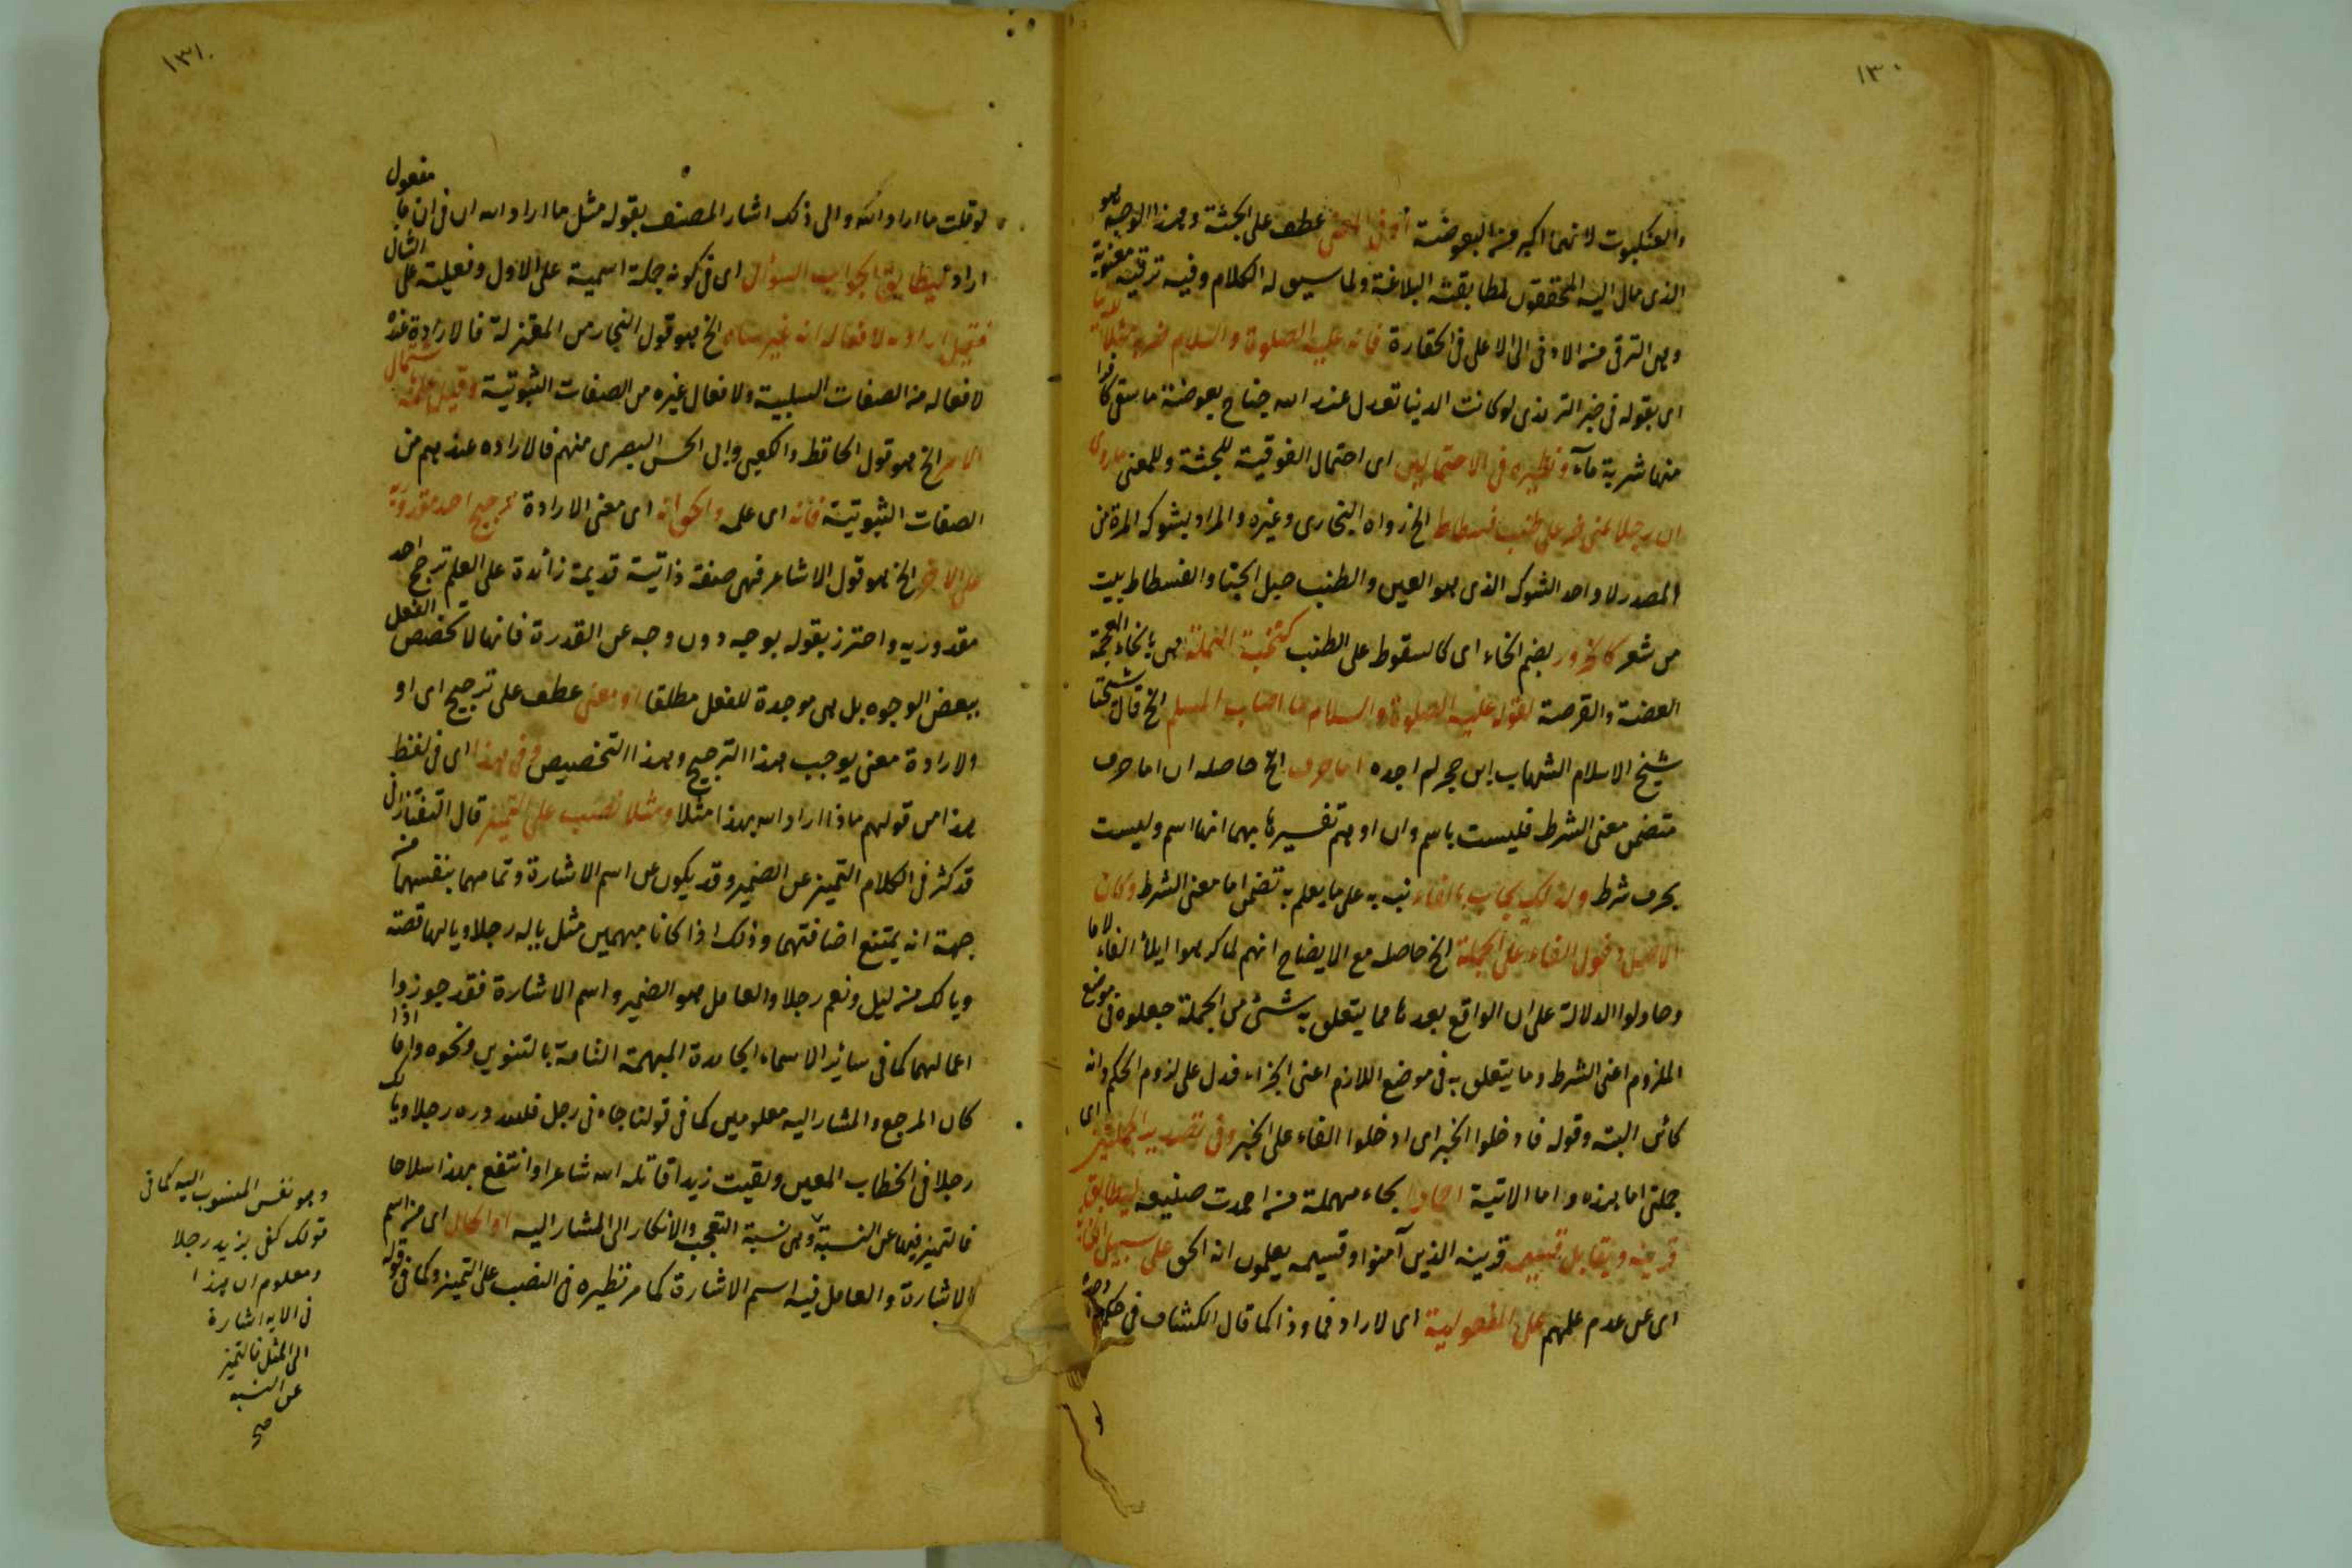 ١٣٠
والعنكبوت لانهما اكبر من البعوضة او في المعنى عطف على الجثة وهذا الوجه هو
الذى مال اليه المحققون لمطابقته البلاغة ولما سيق له الكلام وفيه ترقية معنوية
وهى الترقى من الادنى الى الاعلى فى الحقارة فانه عليه الصلوة والسلام ضربه مثلا للدنيا
اى بقوله فى خبر الترمذى لوكانت الدنيا تعدل عند الله جناح بعوضة ما سقى كافرا
منها شربة مآء ونظيره فى الاحتمالين اى احتمال الفوقية للجثة وللمعنى ماروى
ان رجلا بمنى خر على طنب فسطاط الخ رواه البخارى وغيره والمراد بشوكة المرة من
المصدر لا واحد الشوك الذى هو العين والطنب حبل الخبا والفسطاط بيت
من شعر كالخرور بضم الخاء اى كالسقوط على الطنب كنخبة النملة هى بالخاء المعجمة
العضة والقرصة لقوله عليه الصلوة والسلام ما اصاب المسلم الخ قال شيخنا
شيخ الاسلام الشهاب ابن حجر لم اجده اما حرف الخ حاصله ان اما حرف
متضمن معنى الشرط فليست باسم وان اوهم تفسيرها بمهما انها اسم وليست
بحرف شرط ولذلك يجاب بالفاء نبه به على ما يعلم به تضمن اما معنى الشرط وكان
الاصل دخول الفاء على الجملة الخ حاصله مع الايضاح انهم لما كرهوا ايلاء الفاء لاما
وحاولوا الدلالة على ان الواقع بعدها مما يتعلق به شئ من الجملة جعلوه فى موضع
الملزوم اعنى الشرط وما يتعلق به فى موضع اللازم اعنى الجزاء فدل على لزوم الحكم وانه
كائن البتة وقوله فادخلوا الخبر اى ادخلوا الفاء على الخبر وفى تصدير الجملتين اى
جملتى اما هذه واما الاتية احماد بحاء مهملة من احمدت صنيعه ليطابق
قرينه ويقابل قسيمه قرينه الذين آمنوا وقسيمه يعلمون انه الحق على سبيل الكناية
اى عن عدم علمهم على المفعولية اى لاراد فما وذا كما قال الكشاف فى حكم ما وحده
لو
١٣١
لو قلت ما اراد الله والى ذلك اشار المصنف بقوله مثل ما اراد الله اى فى ان ما مفعول
اراد ليطابق الجواب السؤال اى فى كونه جملة اسمية على الاول وفعلية على الثانى
فقيل ارادته لافعاله انه غير ساه الخ هو قول النجار من المعتزلة فالارادة عنده
لافعاله من الصفات السلبية ولافعال غيره من الصفات الثبوتية وقيل علمه باشتمال
الامر الخ هو قول الجاحظ والكعبى وابى الحسن البصرى منهم فالارادة عندهم من
الصفات الثبوتية فانه اى علمه والحق انه اى معنى الارادة ترجيح احد مقدوريه
على الاخر الخ هو قول الاشاعر فهى صفة ذاتية قديمة زائدة على العلم ترجح احد
مقدوريه واحترز بقوله بوجه دون وجه عن القدرة فانها لا تخصص الفعل
ببعض الوجوه بل هى موجدة للفعل مطلقا او معنى عطف على ترجيح اى او
والارادة معنى يوجب هذا الترجيح وهذا التخصيص وفى هذا اى فى لفظ
هذا من قولهم ماذا اراد الله بهذا مثلا ومثلا نصب على التمييز قال التفتازانى
قد كثر فى الكلام التمييز عن الضمير وقد يكون عن اسم الاشارة وتمامهما بنفسهما من
جهة انه يمتنع اضافتهما وذلك اذا كانا مبهمين مثل ياله رجلا ويالها قصة
ويالك من ليل ونعم رجلا والعامل هو الضمير واسم الاشارة فقد جوزوا
اعمالهما كما فى سائر الاسماء الجامدة المبهمة التامة بالتنوين ونحوه واما اذا
كان المرجع والمشار اليه معلومين كما فى قولنا جاءنى رجل فلله دره رجلا ويالك
رجلا فى الخطاب المعين ولقيت زيدا قاتله الله شاعرا وانتفع بهذا سلاحا
فالتمييز فيهما عن النسبة وهى نسبة التعجب والانكار الى المشار اليه او الحال اى من اسم
الاشارة والعامل فيه اسم الاشارة كما مر نظيره فى النصب على التمييز وكما فى قوله
وهو نفس المنسوب اليه كما فى
قولك كفى بزيد رجلا
ومعلوم ان هذا
فى الايه اشارة
الى المثل فالتميز
عن النسبه
صح